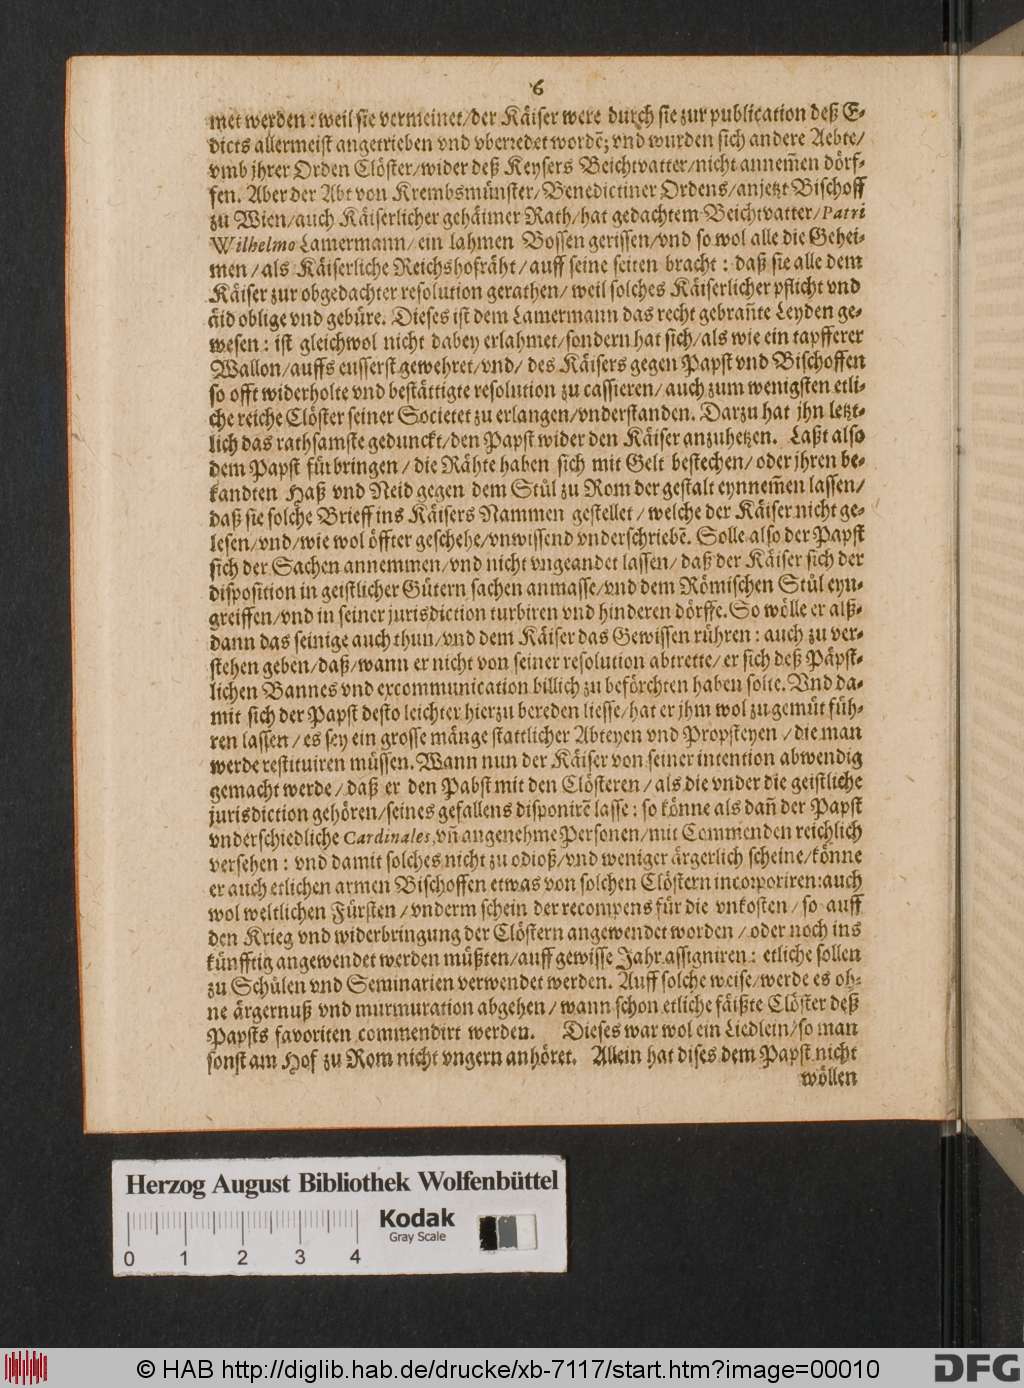 6
met werden: weil sie vermeinet/der Käiser were durch sie zur publication deß E-
dicts allermeist angetrieben vnd vberredet wordẽ; vnd wurden sich andere Aebte/
vmb jhrer Orden Clöster/wider deß Keysers Beichtvatter/nicht annem̃en dörf-
fen. Aber der Abt von Krembsmünster/Benedictiner Ordens/anjetzt Bischoff
zu Wien/auch Käiserlicher gehäimer Rath/hat gedachtem Beichtvatter/Patri
Wilhelmo Lamermann/ein lahmen Bossen gerissen/vnd so wol alle die Gehei-
men/als Käiserliche Reichshofräht/auff seine seiten bracht: daß sie alle dem
Käiser zur obgedachter resolution gerathen/weil solches Käiserlicher pflicht vnd
äid oblige vnd gebüre. Dieses ist dem Lamermann das recht gebrañte Leyden ge-
wesen: ist gleichwol nicht dabey erlahmet/sondern hat sich/als wie ein tapfferer
Wallon/auffs eusserst gewehret/vnd/des Käisers gegen Papst vnd Bischoffen
so offt widerholte vnd bestättigte resolution zu cassieren/auch zum wenigsten etli-
che reiche Clöster seiner Societet zu erlangen/vnderstanden. Darzu hat jhn letzt-
lich das rathsamste gedunckt/den Papst wider den Käiser anzuhetzen. Laßt also
dem Papst fürbringen/die Rähte haben sich mit Gelt bestechen/oder jhren be-
kandten Haß vnd Neid gegen dem Stůl zu Rom der gestalt eynnem̃en lassen/
daß sie solche Brieff ins Käisers Nammen gestellet/welche der Käiser nicht ge-
lesen/vnd/wie wol öffter geschehe/vnwissend vnderschriebẽ. Solle also der Papst
sich der Sachen annemmen/vnd nicht vngeandet lassen/daß der Käiser sich der
disposition in geistlicher Gütern sachen anmasse/vnd dem Römischen Stůl eyn-
greiffen/vnd in seiner jurisdiction turbiren vnd hinderen dörffe. So wölle er alß-
dann das seinige auch thun/vnd dem Käiser das Gewissen rühren: auch zu ver-
stehen geben/daß/wann er nicht von seiner resolution abtrette/er sich deß Päpst-
lichen Bannes vnd excommunication billich zu beförchten haben solte. Vnd da-
mit sich der Papst desto leichter hierzu bereden liesse/hat er jhm wol zu gemüt füh-
ren lassen/es sey ein grosse mänge stattlicher Abteyen vnd Propsteyen/die man
werde restituiren müssen. Wann nun der Käiser von seiner intention abwendig
gemacht werde/daß er den Pabst mit den Clösteren/als die vnder die geistliche
jurisdiction gehören/seines gefallens disponirẽ lasse: so könne als dañ der Papst
vnderschiedliche Cardinales, vñ angenehme Personen/mit Commenden reichlich
versehen: vnd damit solches nicht zu odioß/vnd weniger ärgerlich scheine/könne
er auch etlichen armen Bischoffen etwas von solchen Clöstern incorporiren: auch
wol weltlichen Fürsten/vnderm schein der recompens für die vnkosten/so auff
den Krieg vnd widerbringung der Clöstern angewendet worden/oder noch ins
künfftig angewendet werden müßten/auff gewisse Jahr assigniren: etliche sollen
zu Schůlen vnd Seminarien verwendet werden. Auff solche weise/werde es oh-
ne ärgernuß vnd murmuration abgehen/wann schon etliche fäißte Clöster deß
Papsts favoriten commendirt werden. Dieses war wol ein Liedlein/so man
sonst am Hof zu Rom nicht vngern anhöret. Allein hat dises dem Papst nicht
wöllen
Herzog August Bibliothek Wolfenbüttel
Kodak
Gray Scale
0 1 2 3 4
© HAB http://diglib.hab.de/drucke/xb-7117/start.htm?image=00010
DFG